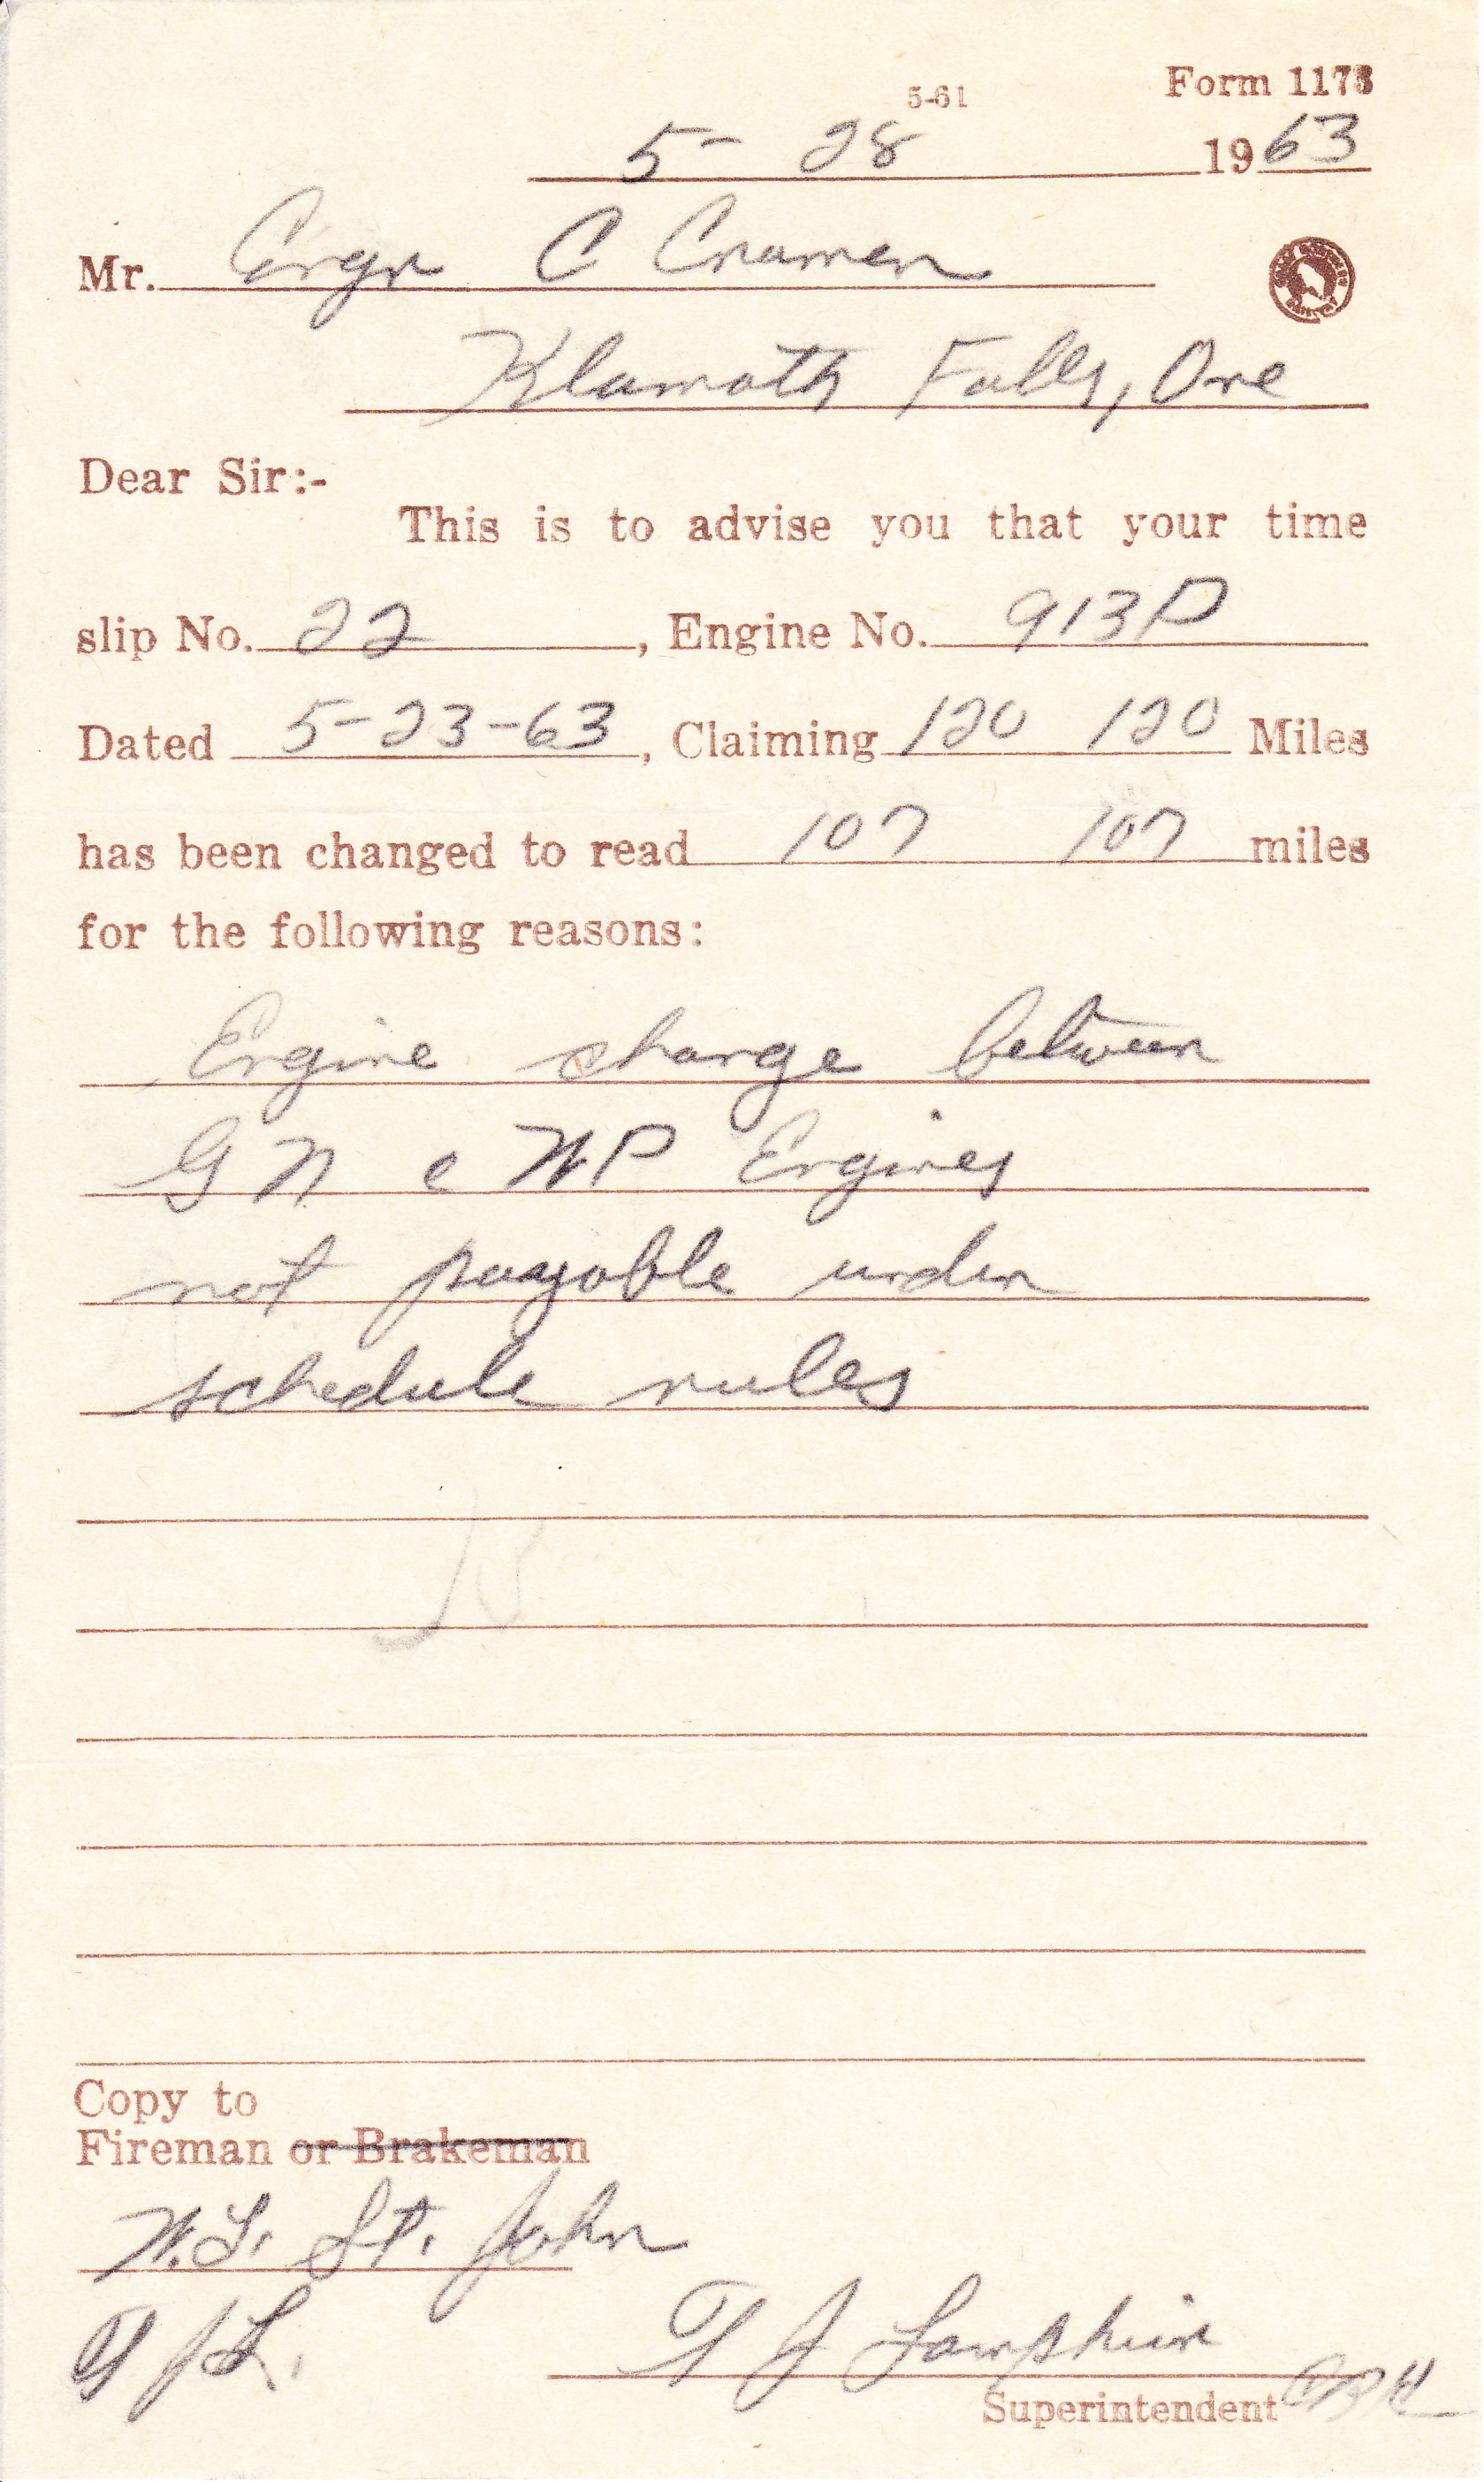 5-61 Form 1178
5-28 1963
Mr. Engr C Cramer
Klamath Falls, Ore
Dear Sir:-
This is to advise you that your time
slip No. 22, Engine No. 913P
Dated 5-23-63, Claiming 120 120 Miles
has been changed to read 107 107 miles
for the following reasons:
Engine change between
GN & WP Engines
not payable under
schedule rules
Copy to
Fireman or Brakeman
W.L. St. John
T J Lamphier
Superintendent